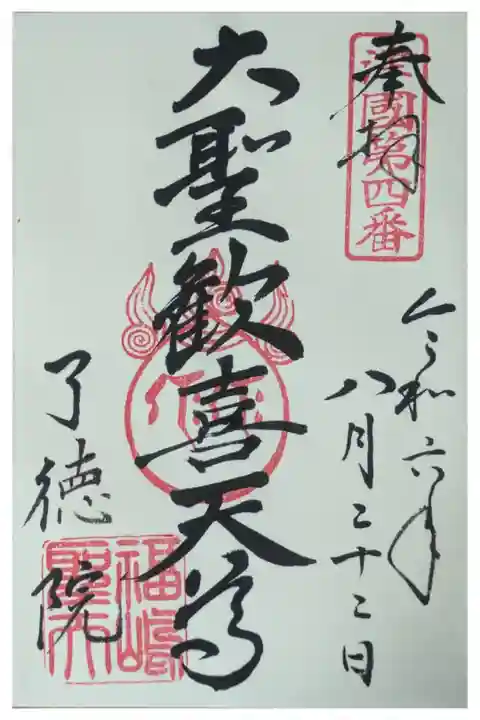 奉拝
國第四番
令和六年
八月二十二日
大聖歓喜天尊
了徳院
福嶋
聖天